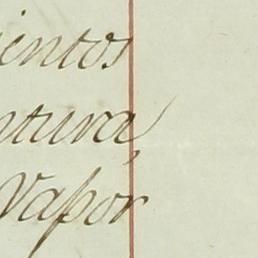 ientos
ntura,
Vapor